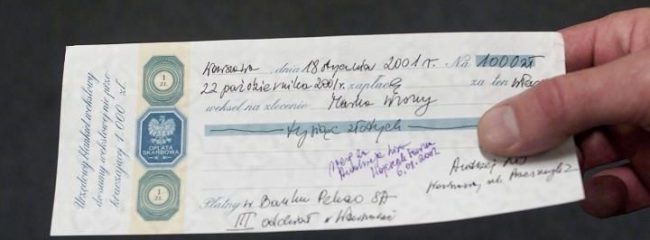 Urzędowy blankiet wekslowy
do sumy wekslowej nie prze-
kraczającej 1.000 zł.
1
ZŁ
OPŁATA
SKARBOWA
1
ZŁ
Warszawa dnia 18 stycznia 2001 r. Na 1000 zł
22 października 2001 r. zapłacę za ten
weksel na zlecenie Marka
tysiąc złotych
6.01.2002
Andrzej
ul.
Płatny w Banku Pekao SA
III oddział w Warszawie